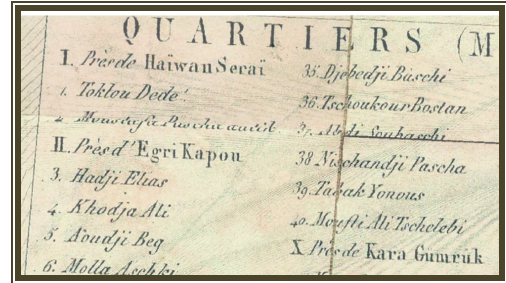 QUARTIERS (M
I. Près de Haïwan Seraï
1. Toklou Dedé
2. Moustafa Pascha
II. Près d'Egri Kapou
3. Hadji Elias
4. Khodja Ali
5. Aoudji Beg
6. Molla Aschki
35. Djebedji Baschi
36. Tschoukour Bostan
37. Abdi Soubaschi
38 Nischandji Pascha
39. Tabak Yonous
40. Moufti Ali Tschelebi
X Près de Kara Gumrük